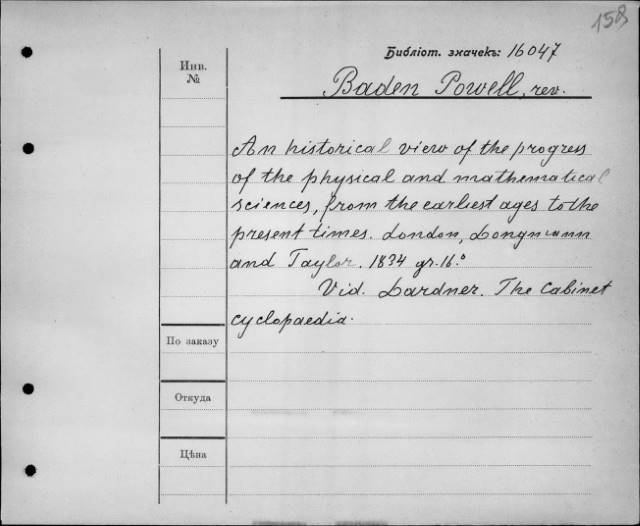 158
Библіот. значекъ: 16047
Инв.
№
Baden Powell, rev.
An historical view of the progress
of the physical and mathematical
sciences, from the earliest ages to the
present times. London, Longmann
and Taylor. 1834 gr. 16.°
Vid. Lardner. The Cabinet
cyclopaedia.
По заказу
Откуда
Цѣна